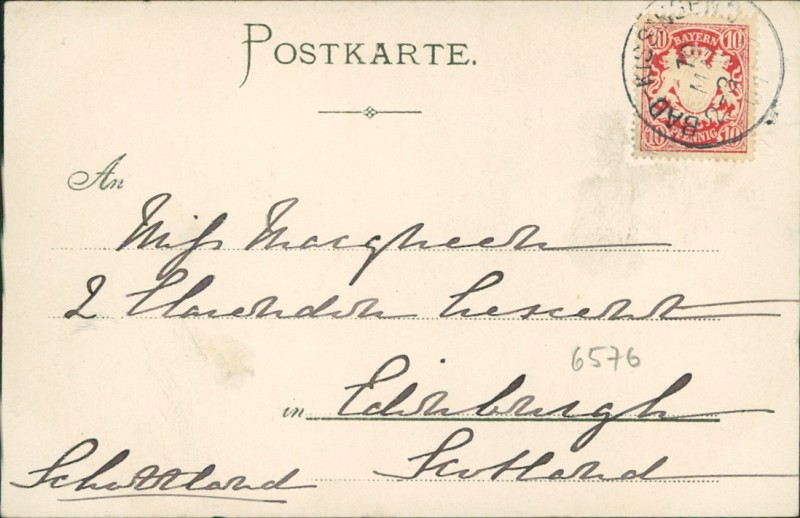 POSTKARTE.
BAYERN
10 10
BAD KISSINGEN
10 PFENNIG 10
An
Miss
2 Clarendon Crescent
6576
in Edinburgh
Schottland Scotland